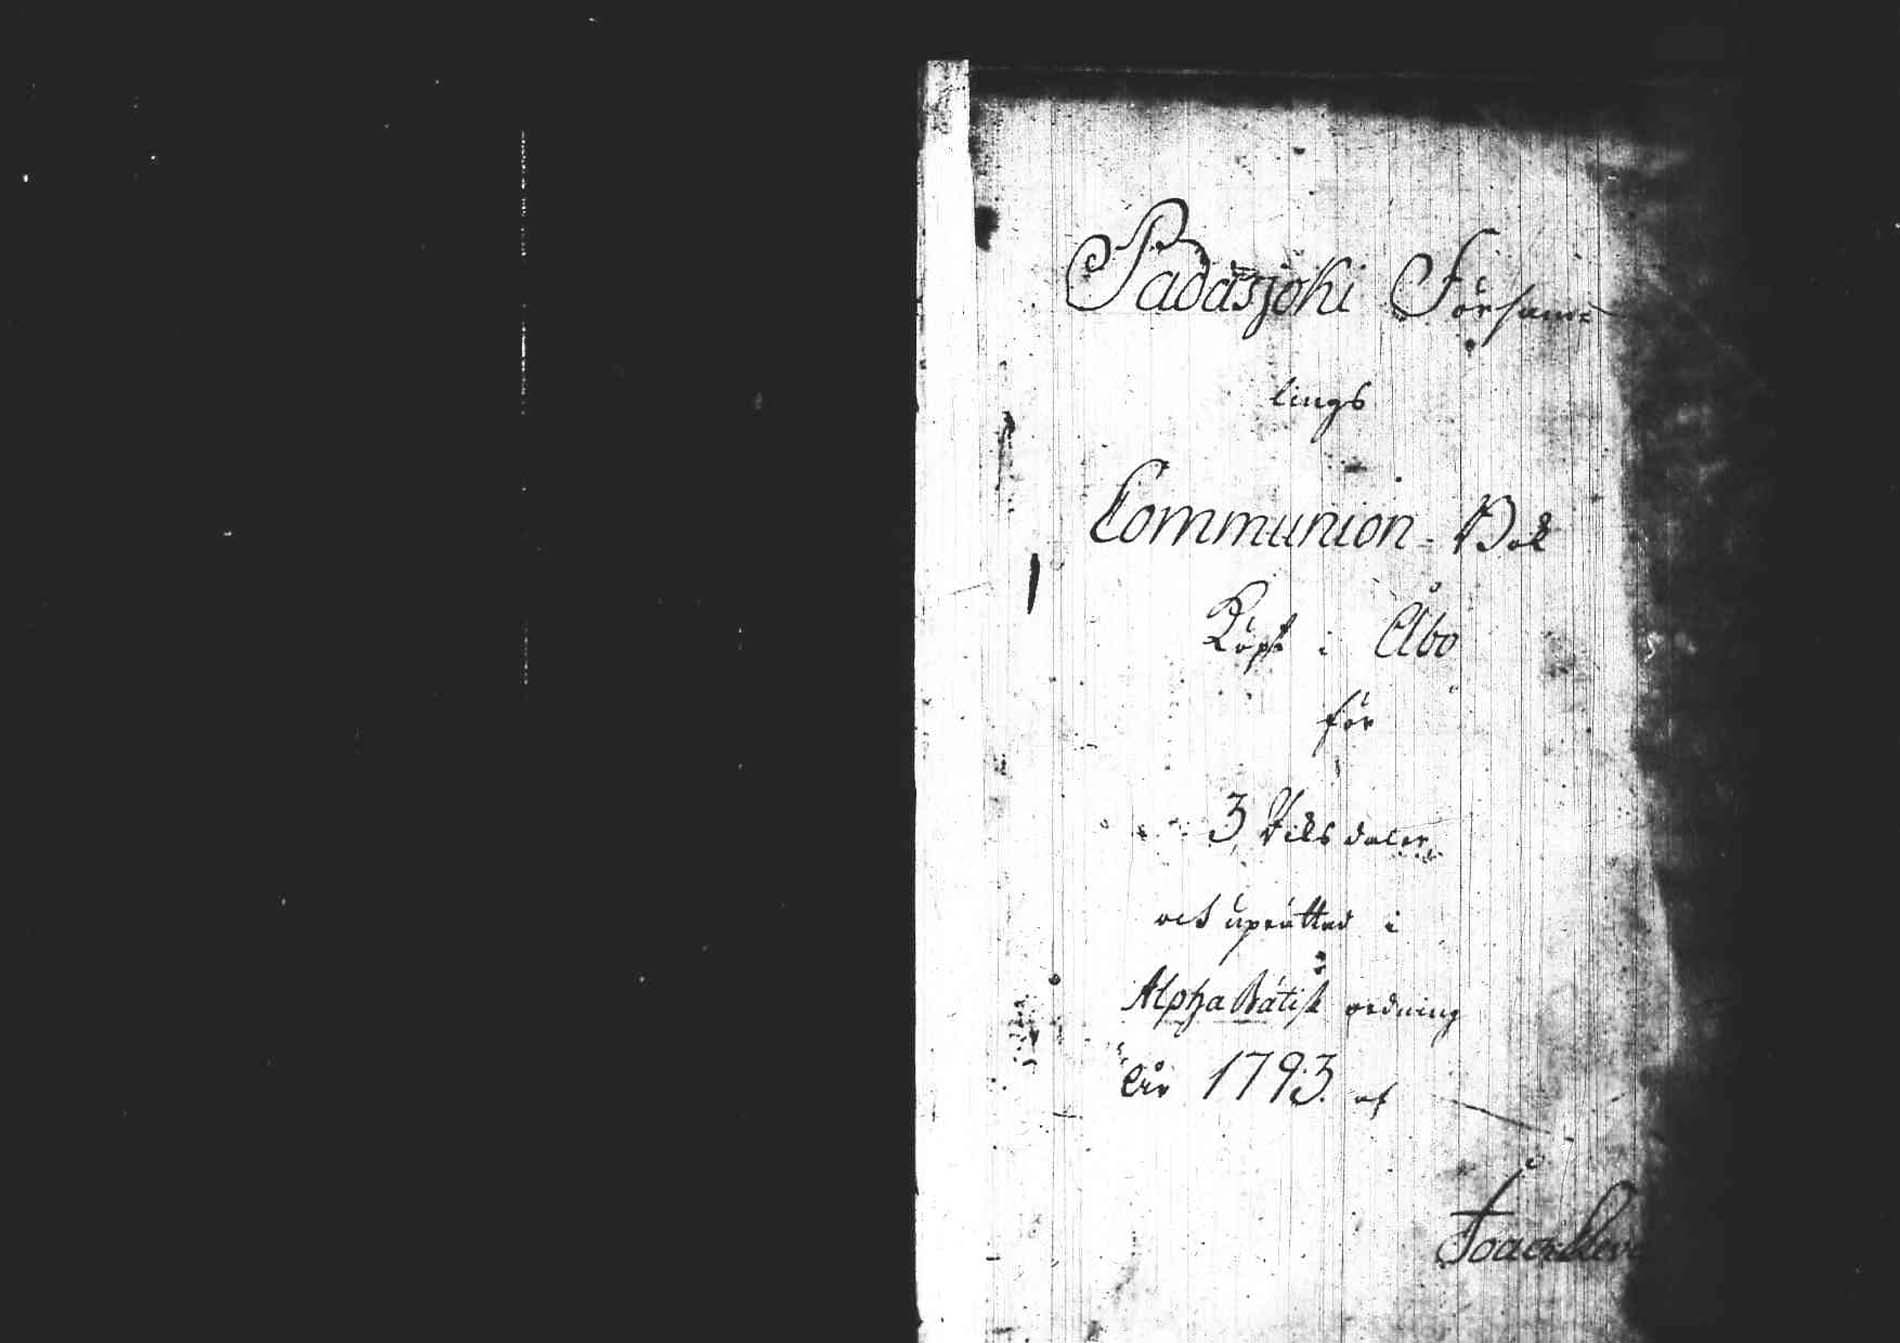 Padasjoki Försams
lings
Communion-Bok
Köpt i Åbo
för
3 Riksdaler
och uprättad i
AlphaBätisk ordning
År 1793. af